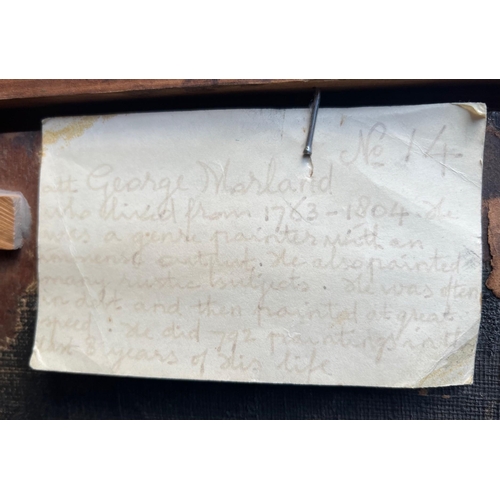 No 14
att George Morland
who lived from 1763-1804. He
was a genre painter with an
immense output. He also painted
many rustic subjects. He was often
in debt and then painted at great
speed: He did 792 paintings in the
last 8 years of his life